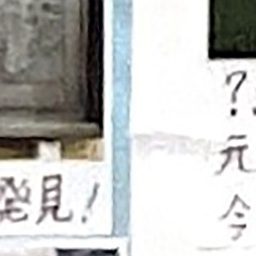 発見!
?
元
今